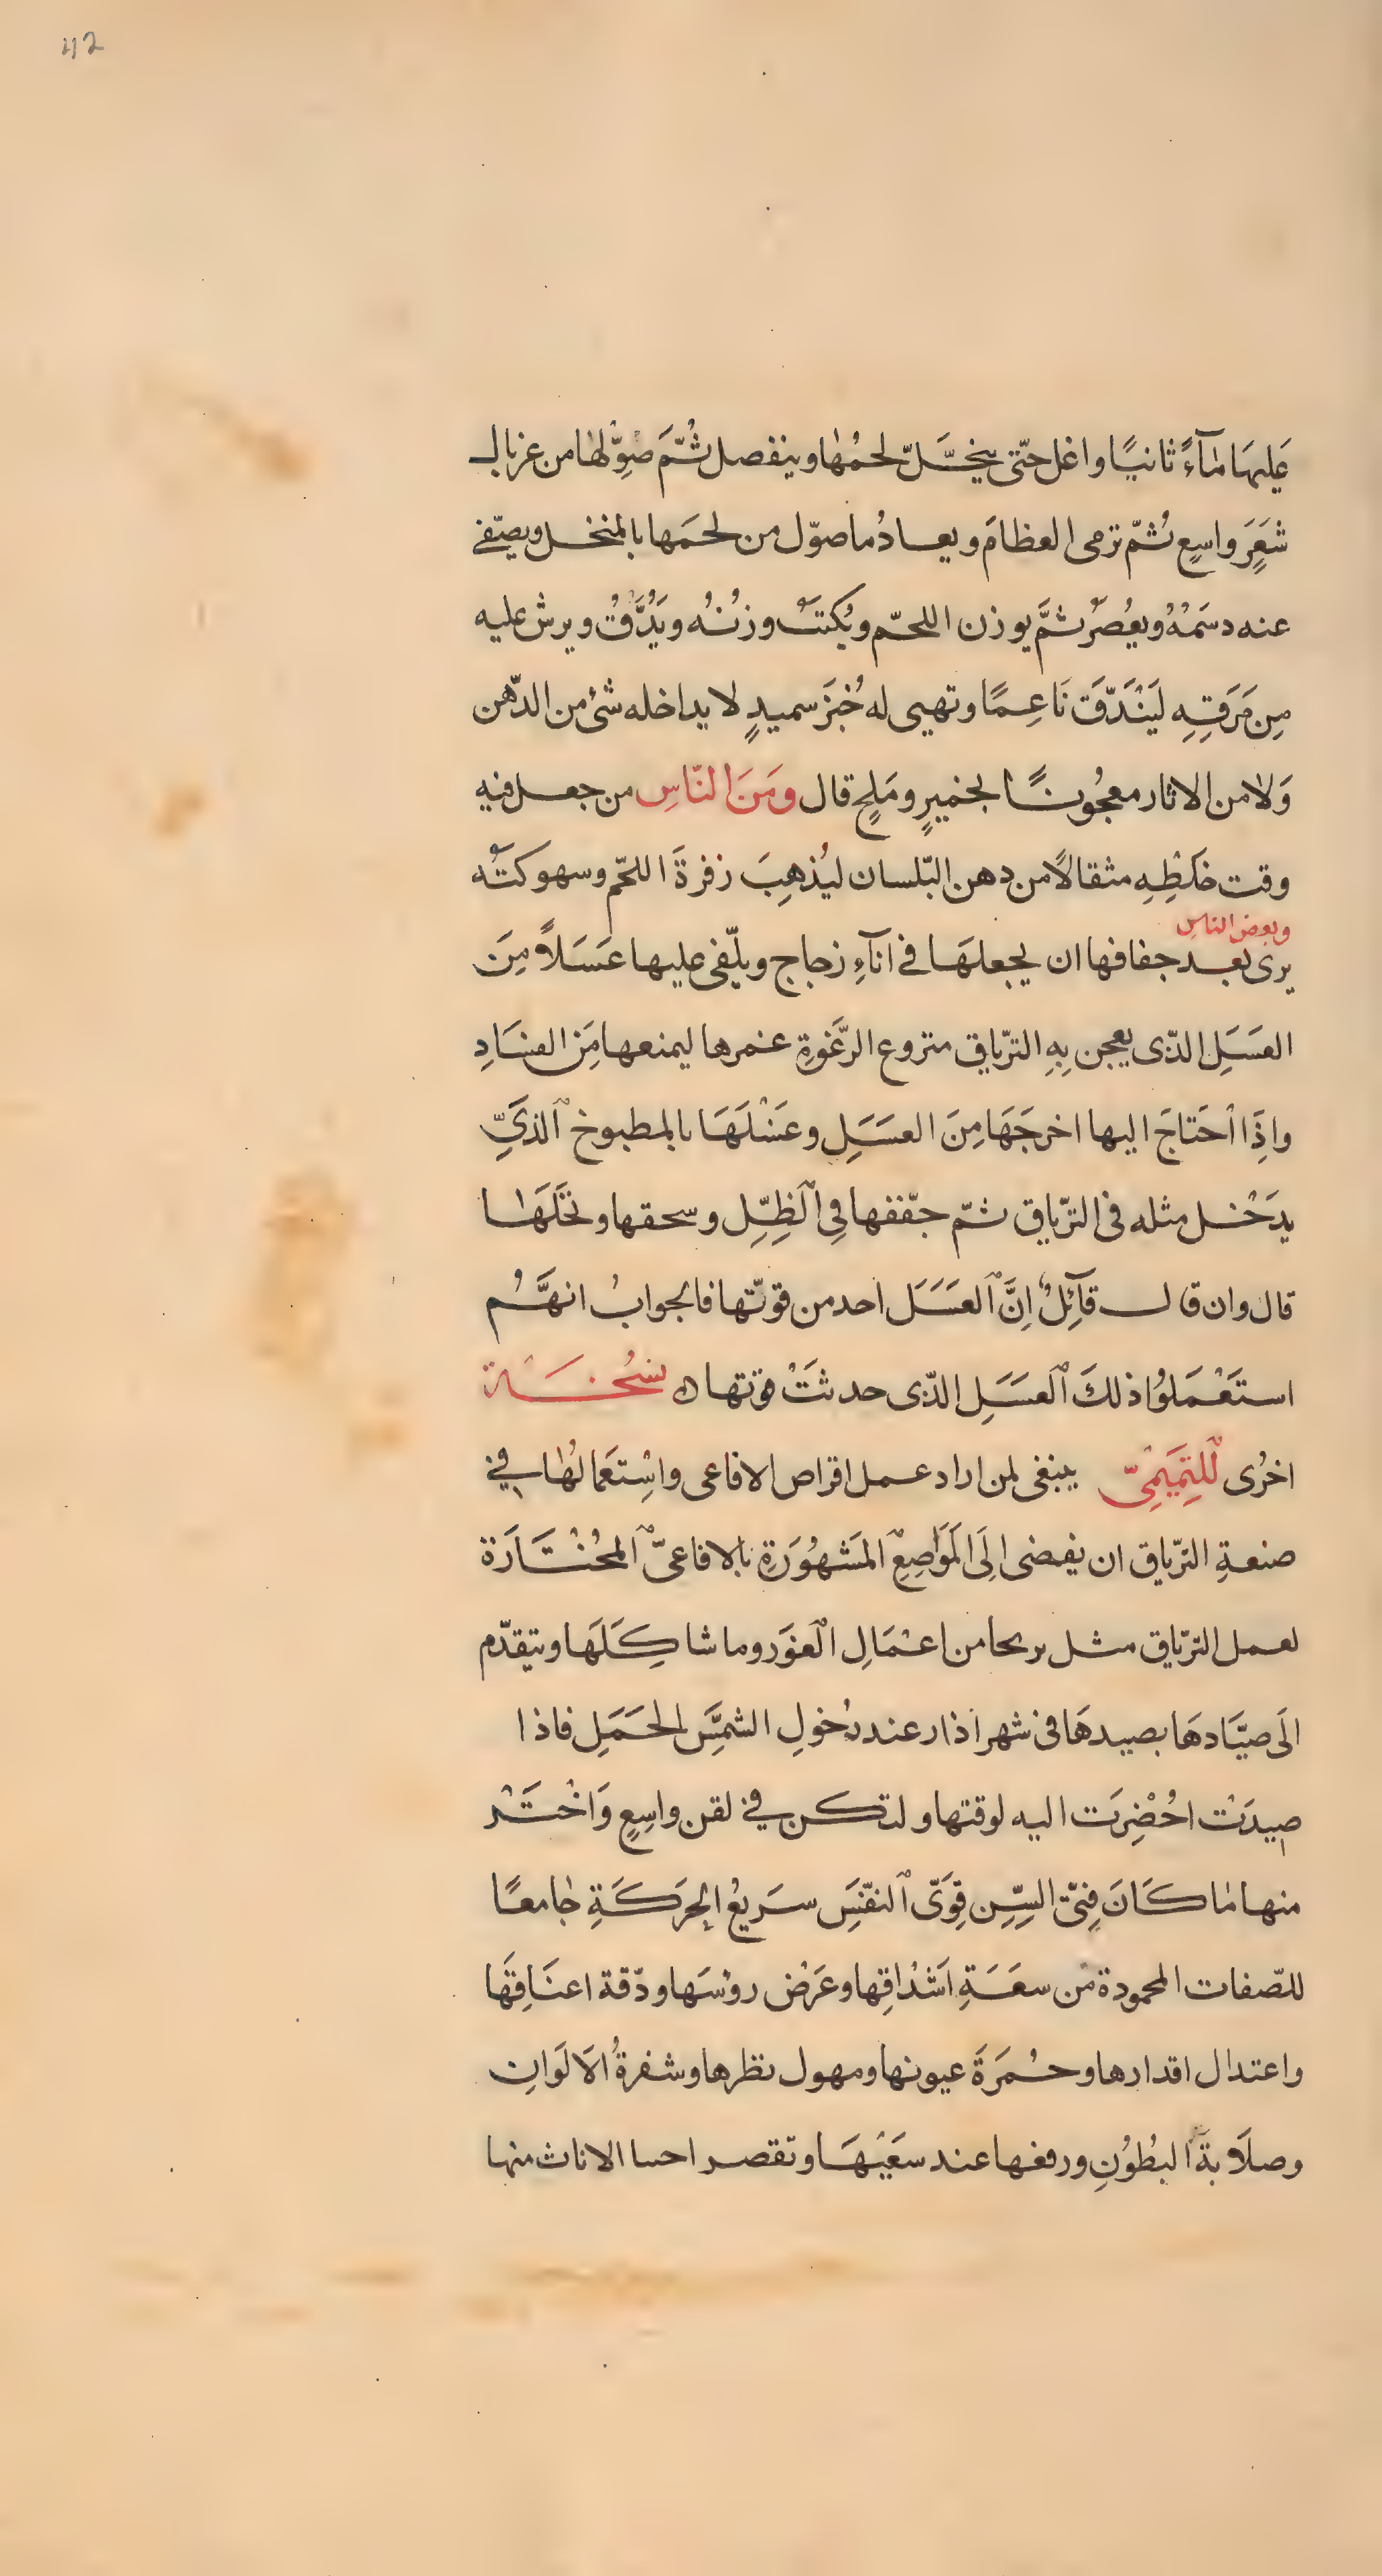 42
عَليهَا مَآءً ثانيًا واغل حتّى يخَلّ لحمُها وينفصل ثُمّ صوِّلها من غربال
شَعَرٍ واسعٍ ثمّ ترمى العظامَ ويعادُ ما صوّل من لحمَها بالمنخل ويصفّے
عنه دسَمُهُ ويعُصَرُ ثمَّ يوزن اللحم ويُكتبُ وزنُه ويَدُقُّ ويرش عليه
مِن مَرَقتِهِ ليَنْدَقّ نَاعِمًا وتهيى له خُبَز سميدٍ لا يداخله شئ من الدّهن
وَلا من الاثار معجُونًا بخميرٍ ومَلحٍ قال ومَنَ النّاسِ من جعل فيه
وقت خَلطِهِ مثقالاً من دهن البّلسان ليُذهِبَ زفرةَ اللحّم وسهوكتُه
وبعض الناس
يرى بعد جفافها ان يجعلهَا فے انآءِ زجاج ويلّقى عليها عَسَلاً مِنَ
العسَلِ الذّى يعجن بِهِ الترّياق منزوع الرَّغوةِ غمرها ليمنعها مَن الفسَادِ
واِذَا اْحَتاجَ اليها اخرجَهَا مِنَ العسَلِ وغسْلَهَا بالمطبوخ الذَىّ
يدَخل مثله فى الترّياق ثمّ جفّفها فِى الظِلّ وسحقها ونخَلَها
قال وان قال قآئِلٌ اِنَّ العسَل احد من قوّتها فالجوابُ انهَّمُ
استَعْمَلوُا ذلكَ العسَلِ الذّى حدثتْ قوتها ه نسُخَة
اخرُى للتِمَيمِىّ ينبغى لمن اراد عمل اقراص الافاعى واسْتِعَمالهُا فے
صنعةِ الترّياق ان يفضى الَى المَوَاضِعِ المَشهُوَرَةِ بالافاعىّ المخُتَارَة
لعمل الترّياق مثل بريحا من اعْمَالِ الغوَر وما شاكِلَهَا ويتقدّم
الَى صيَّادهَا بصيدهَا فى شهر اذار عند دُخولِ الشمَّس الحَمَلِ فاذا
صِيدَتْ احُضْرِت اليه لوقتها ولتكن فے لقن واسِعٍ وَاخْتَر
منها مٰا كَانَ فِتىّ السِّنِ قوَىّ النفّسِ سَريعُ الحرَكَةِ جٰامعًا
للصّفات المحمودة من سعَةِ اَشْدَاقِها وعَرْض روْسَها ودّقة اعنَاقِهَا
واعتدال اقدارها وحُمرَةَ عيونها ومهول نظرها وشفرةُ الاَلوَانِ
وصلاَبةَ البطُوُنِ ورفعها عند سعَيْهَا وتقصر احىا الاناث منها